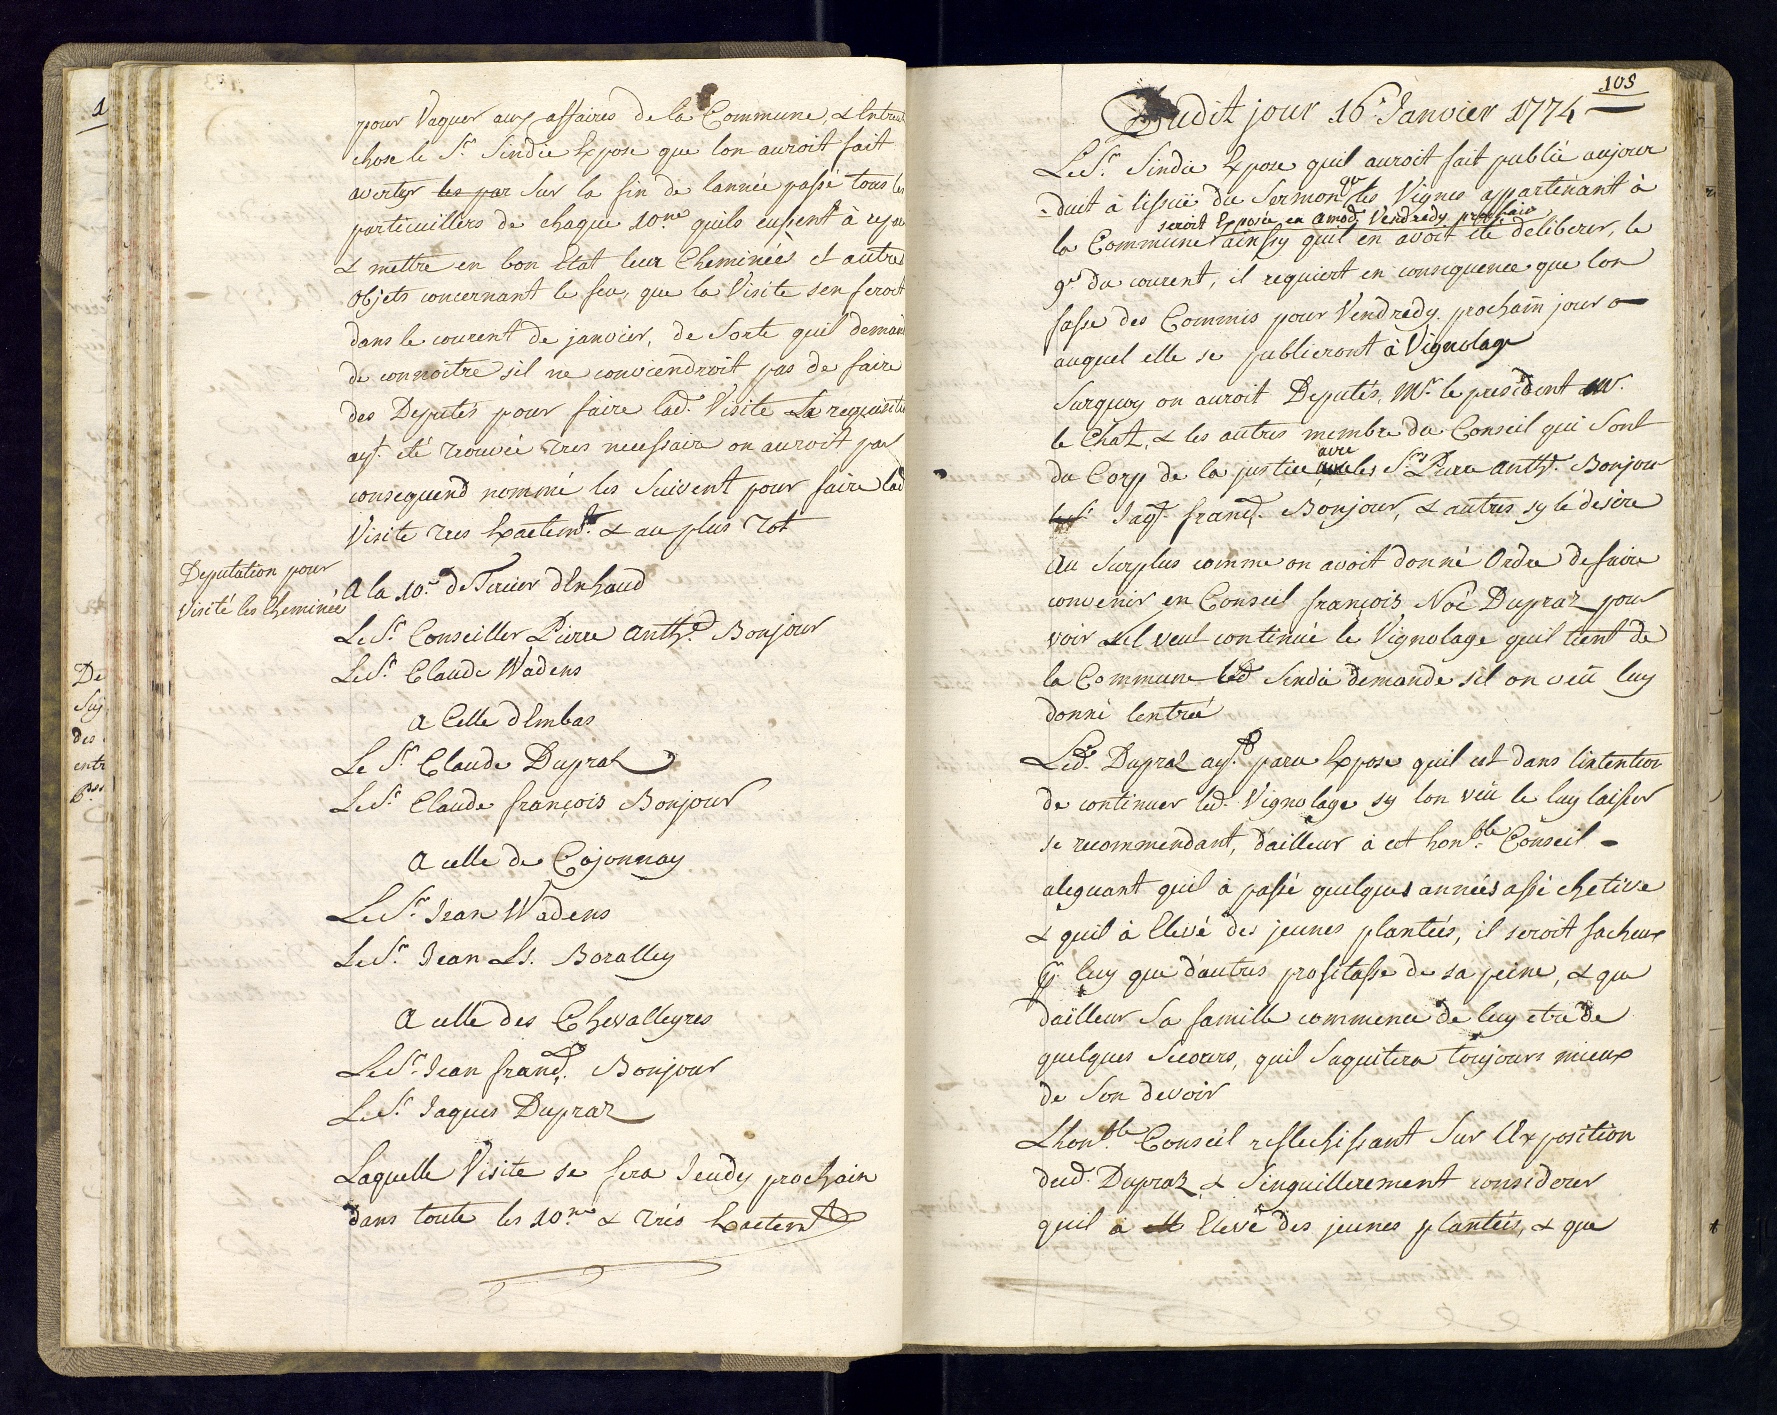 pour Vaquer aux affaires de la Commune, & Entre
chose le Sr. Sindic Expose que lon auroit fait
avertyr les par Sur la fin de lannée passé tous les
particuillers de chaque 10.ne quils eussent à repa
& mettre en bon Etat leur Cheminée et autres
objets concernant le feu, que la Visite sen feroit
dans le courent de janvier, de Sorte quil demand
de connoitre sil ne conviendroit pas de faire
des Deputés pour faire lad. Visite La requisite
ayt. été trouvée tres necessaire on auroit par
consequend nommé les Suivent pour faire lad
Visite tres Exactemt. & au plus tot
Deputation pour
Visité les Cheminée
A la 10.e de Tercier dEnhaud
Le Sr. Conseiller Pierre Anthd. Bonjour
Le Sr. Claude Wadens
A Celle dEmbas
Le Sr. Claude Dupraz
Le Sr. Claude françois Bonjour
A celle de Cojonnay
Le Sr. Jean Wadens
Le Sr. Jean Ls. Boralley
A celle des Chevalleyres
Le Sr. Jean frand. Bonjour
Le Sr. Jaques Dupraz
Laquelle Visite se fera Jeudy prochain
dans toute les 10.nes & très Exactemt
1
De
Suj
des
entr
105
Dudit jour 16.e Janvier 1774
Le Sr. Sindic Expose quil auroit fait publié aujour
-duit à lissuë du Sermon que les Vignes appartenant à
seroit Exposée en amod. Vendredy prochain
la Commune ainssy quil en avoit été deliberer, le
9.e du courent, il requiert en consequence que lon
fasse des Commis pour Vendredy prochain jour
auquel elle se publieront à Vignolage
Surquoy on auroit Deputés, Mr. le president
le Chat, & les autres membre du Conseil qui Sont
du Corp de la justice avec les Srs Pierre Anthd. Bonjour
Jaqs. frand. Bonjour, & autres sy le désire
Au Surplus comme on avoit donné Ordre de faire
convenir en Conseil françois Noé Dupraz pour
voir Sil veut continué le Vignolage quil tient de
la Commune led Sindic demande sil on veût luy
donné lentrée
Led. Dupraz ayt. paru Expose quil est dans lintention
de continuer led. Vignolage sy lon veü le luy laisser
se recommendant, dailleur à cet honble. Conseil -
aleguant quil à passé quelques années assé chetive
& quil à Elevé des jeunes plantées, il seroit facheux
pr. luy que dautres profitasse de sa peine, & que
dailleur Sa famille commence de luy etre de
quelques Secours, quil Saquitera toujours mieux
de Son devoir
Lhonble Conseil reflechissant Sur lExposition
dud. Dupraz, & Singuillerement considerer
quil à Elevé des jeunes plantées, & que